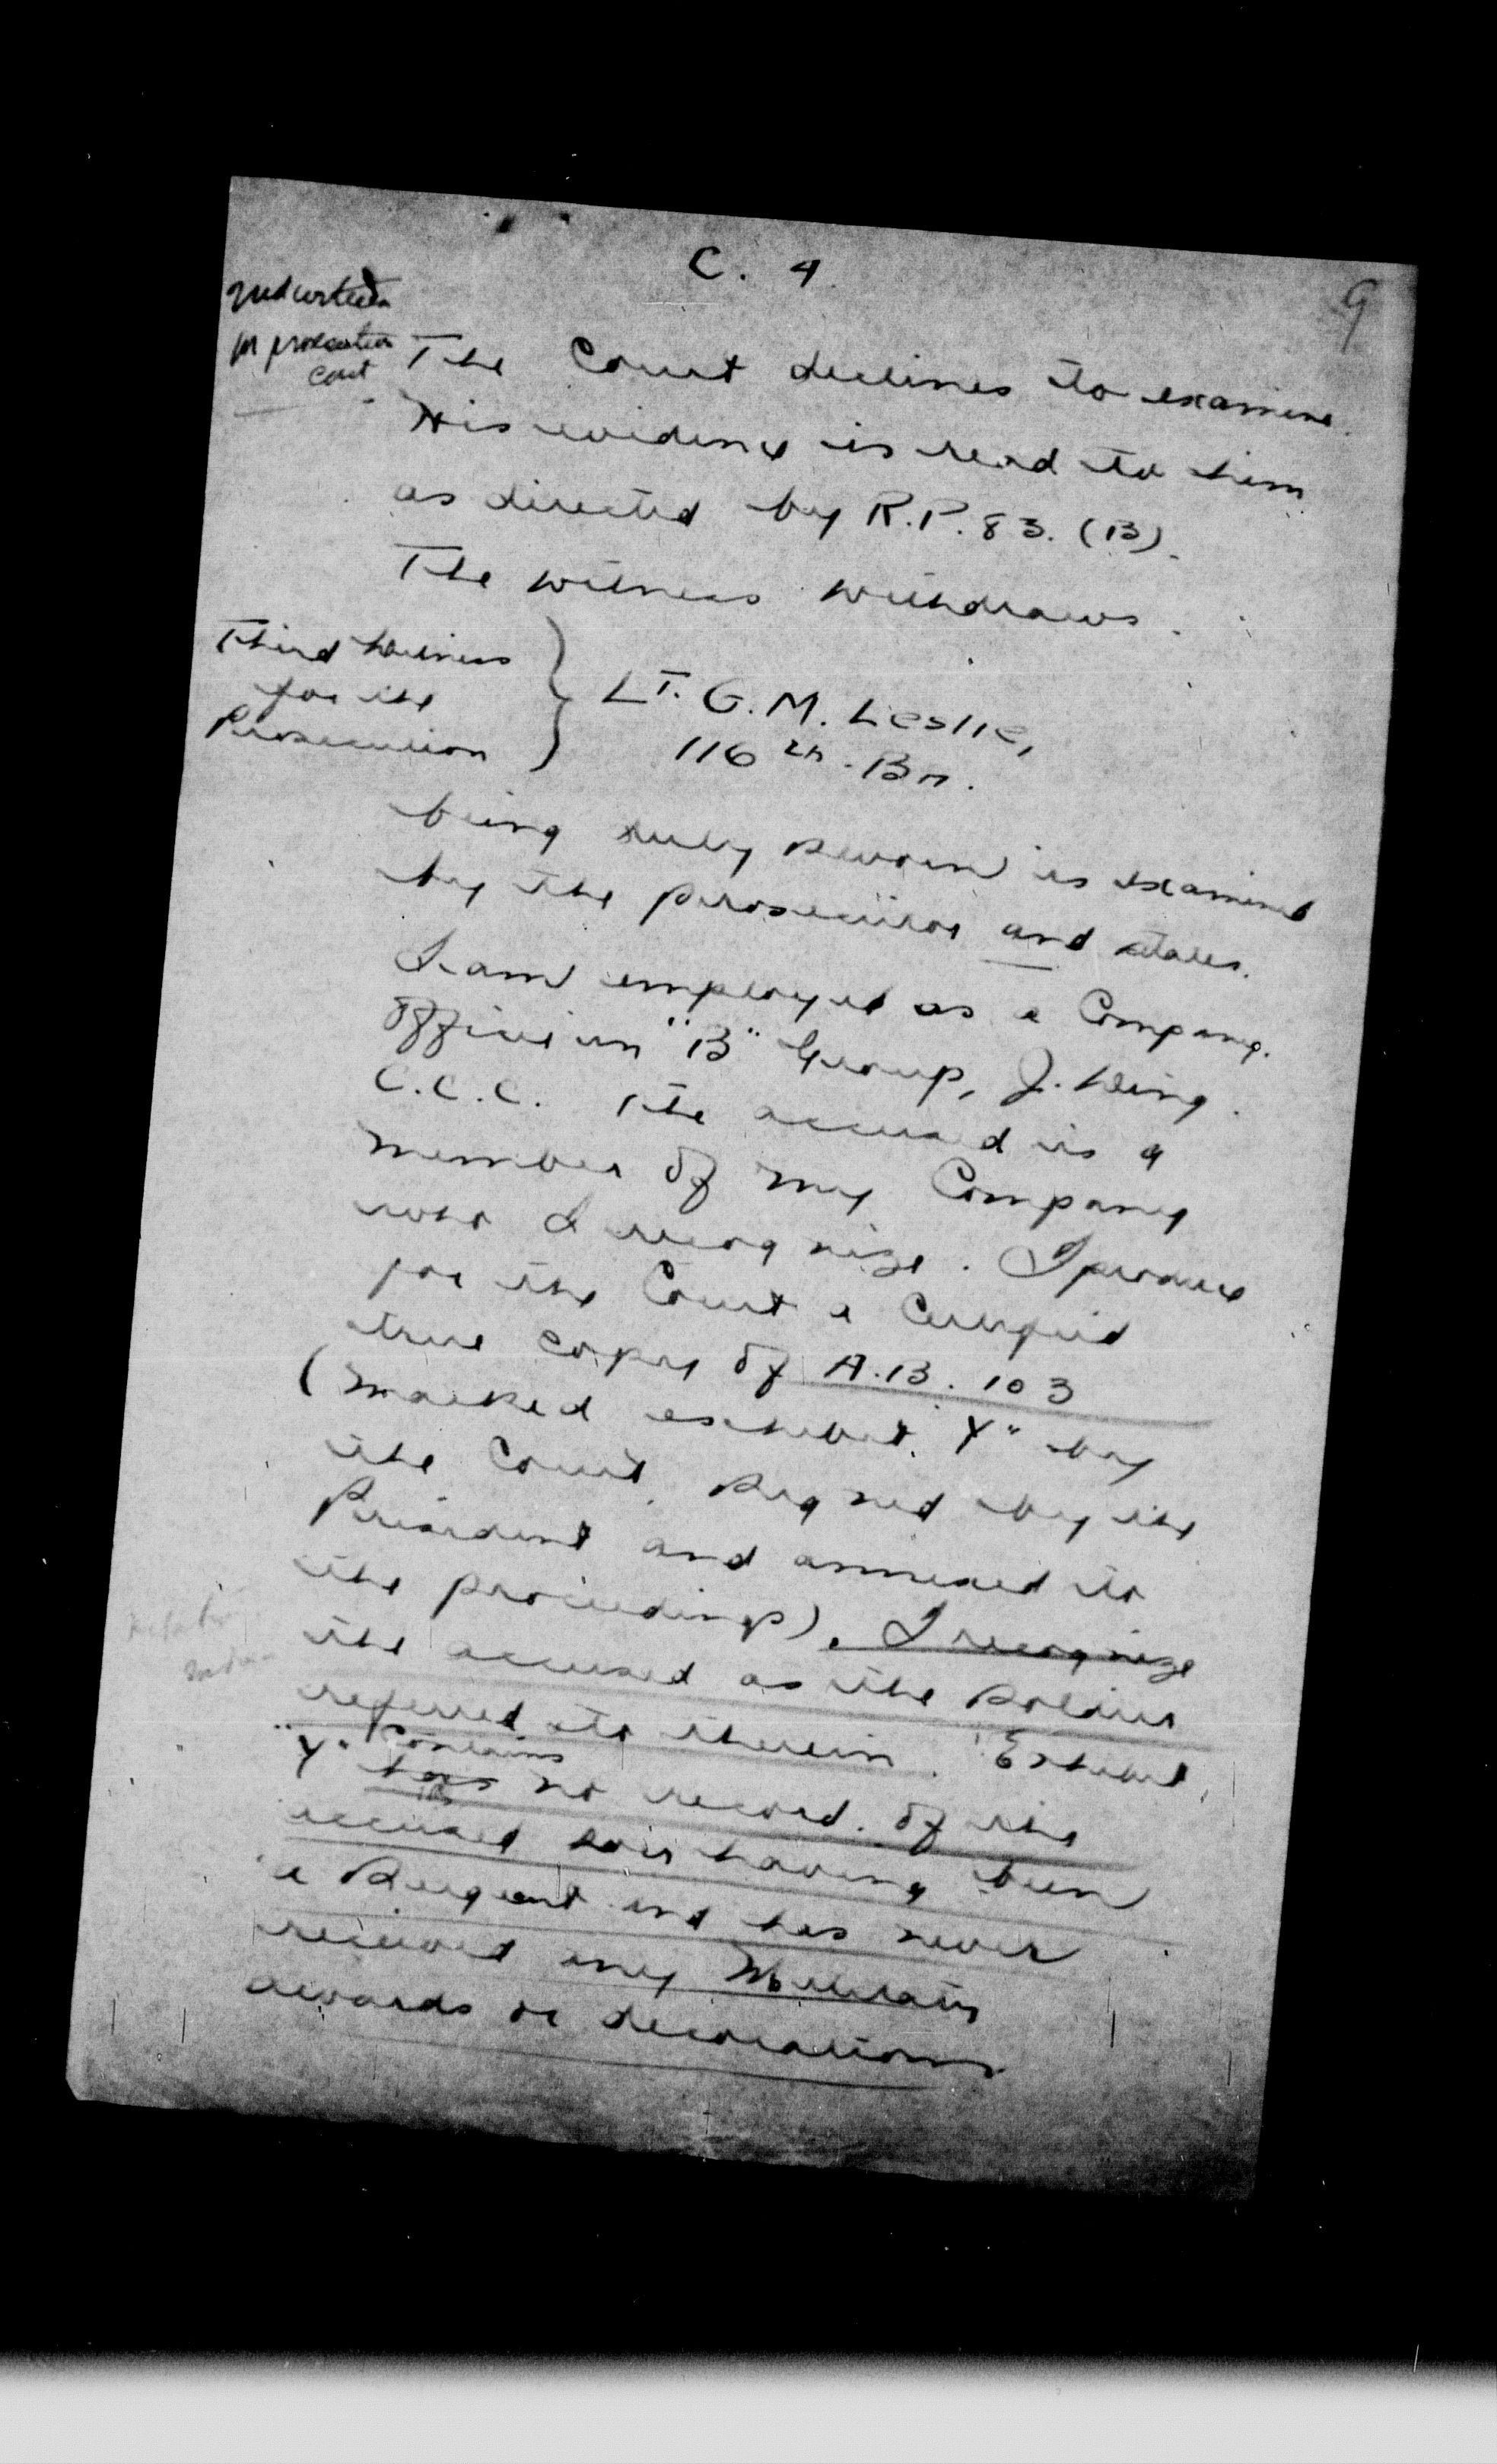 C. 4
9
2nd witness
for prosecution
cont
The Court declines to examine.
His evidence is read to him
as directed by R.P. 83. (B).
The witness withdraws.
Third Witness
for the
Prosecution
Lt. G. M. Leslie,
116th. Bn.
being duly sworn is examined
by the prosecutor and states.
I am employed as a Company.
Officer in "B" Group, J. Wing.
C.C.C. The accused is a
member of my Company
who I recognize. I produce
for the Court a Certified
true copy of A.B. 103
(marked exhibit "Y" by
the Court, signed by the
President and annexed to
the proceedings). I recognize
the accused as the soldier
referred to therein. Exhibit
contains
"Y" has no record of the
accused having been
a Sergeant and has never
received any Military
awards or decorations